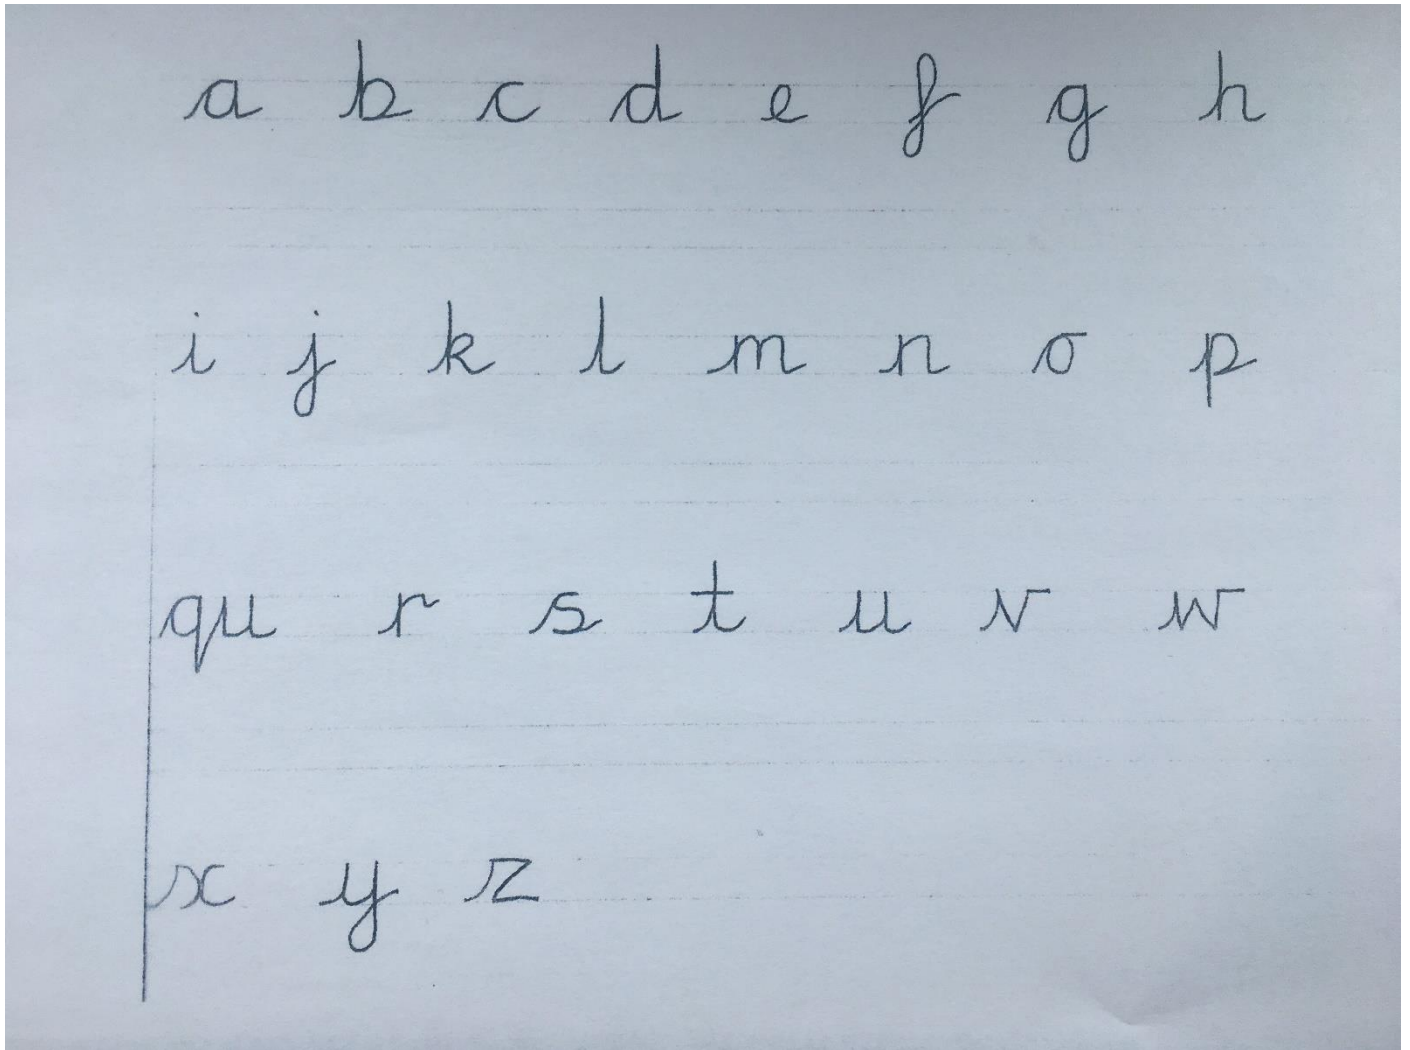 a b c d e f g h
i j k l m n o p
qu r s t u v w
x y z